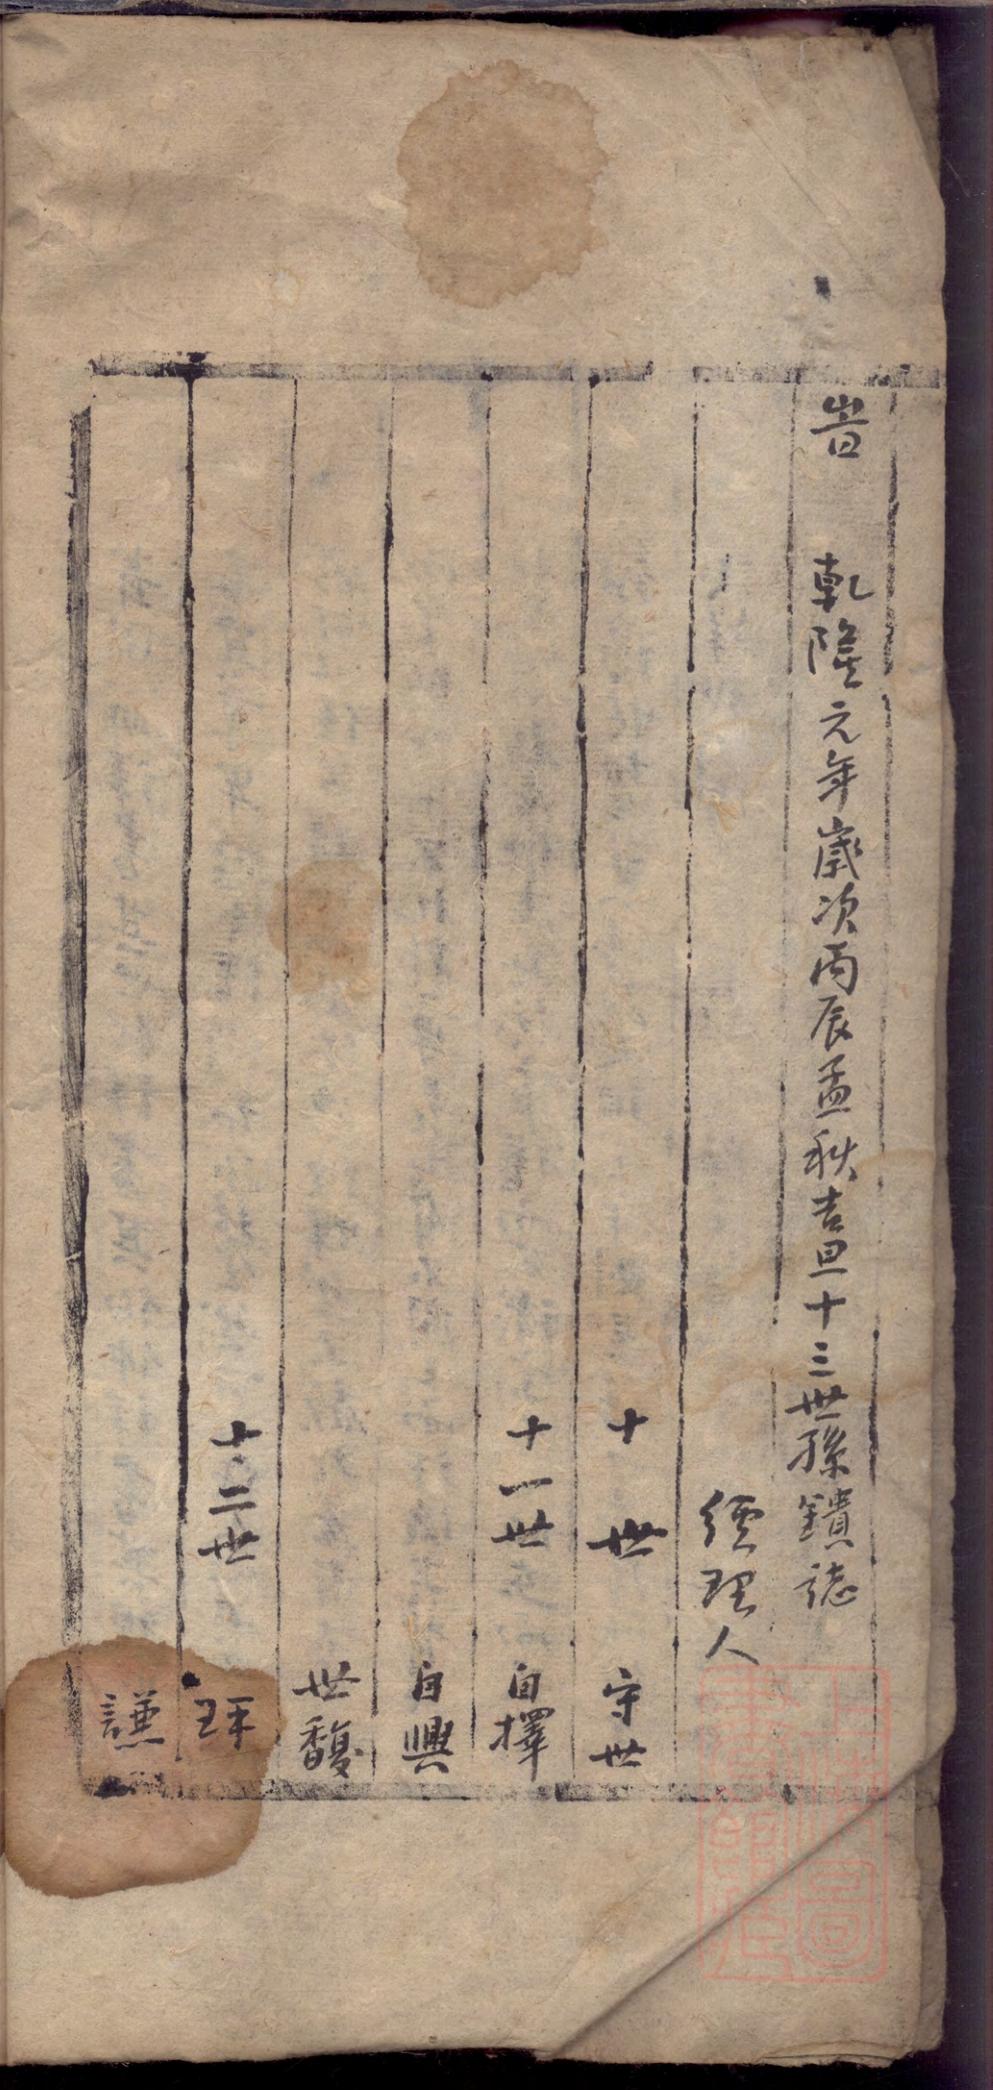 旹　乾隆元年歲次丙辰孟秋吉旦十三世孫鐀誌
經理人
十世　守世
十一世　自擇
自興
世馥
十二世　玶
謙
上海圖書館藏